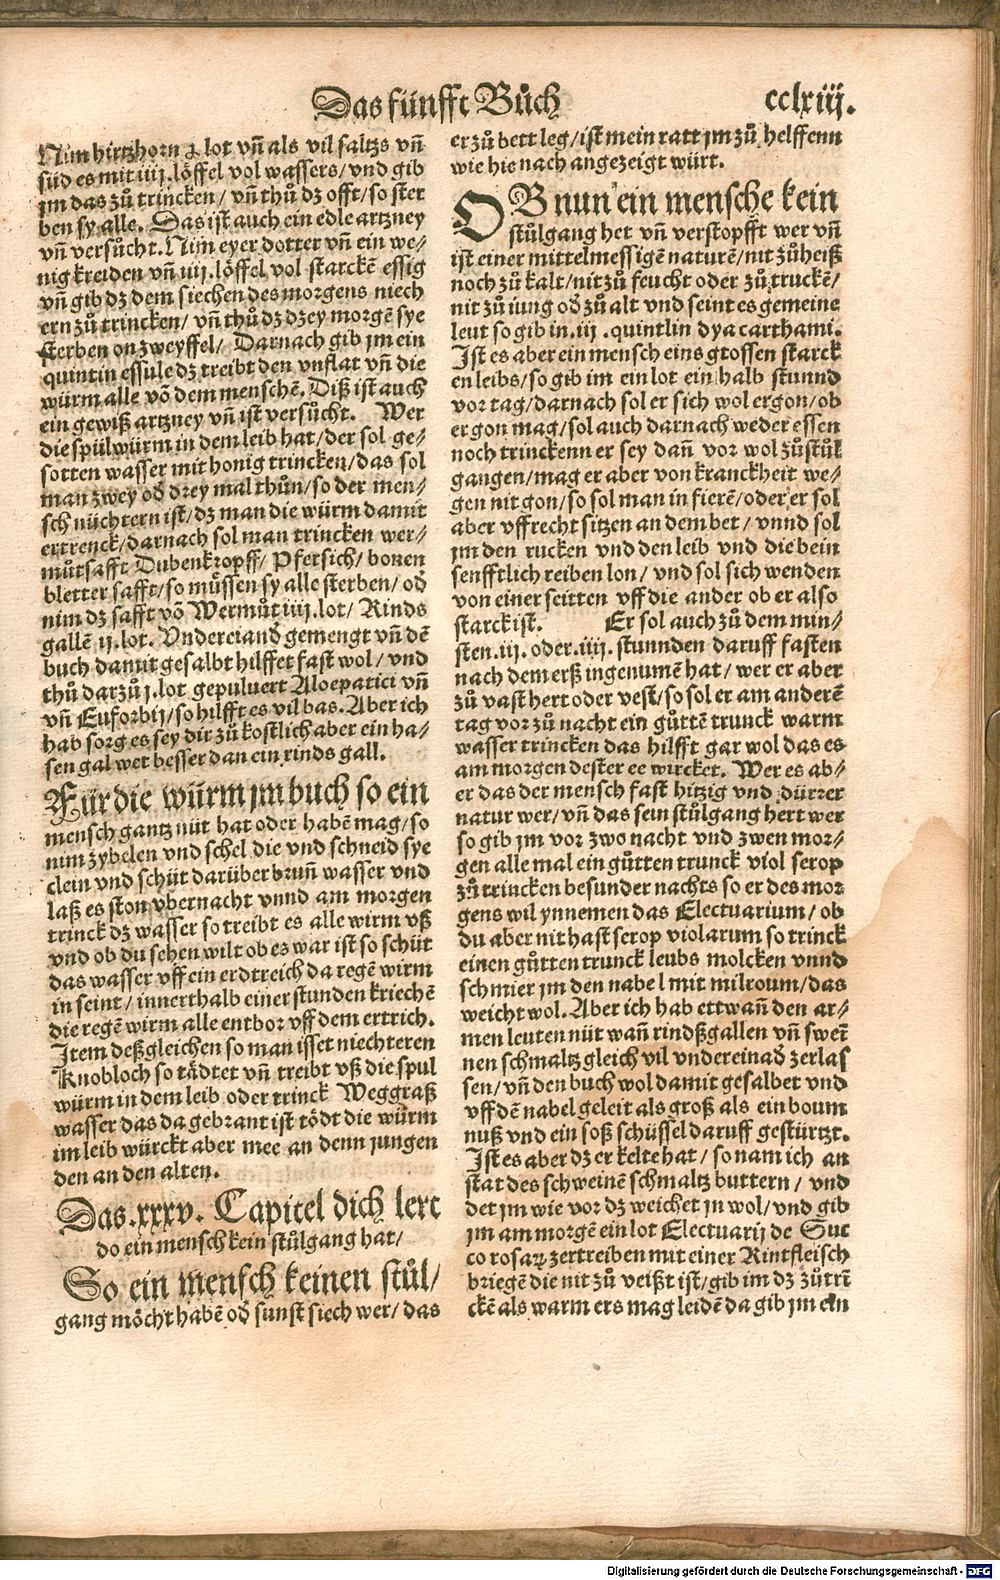 Das fünfft Bůch
cclxiij.
Nim hirtzhorn ʒ lot vñ als vil saltzs vñ
süd es mit iiij. löffel vol wassers/ vnd gib
jm das zů trincken/ vñ thů dz offt/ so ster
ben sy alle. Das ist auch ein edle artzney
vñ versůcht. Nim eyer dotter vñ ein we⸗
nig kreiden vñ iiij. löffel vol starckē essig
vñ gib dz dem siechen des morgens niech
ern zů trincken/ vñ thů dz dzey morgē sye
sterben on zweyffel/ Darnach gib jm ein
quintin essule dz treibt den vnflat vñ die
würm alle vō dem menschē. Diß ist auch
ein gewiß artzney vñ ist versůcht. Wer
die spülwürm in dem leib hat/ der sol ge⸗
sotten wasser mit honig trincken/ das sol
man zwey oď drey mal thůn/ so der men⸗
sch nüchtern ist/ dz man die würm damit
ertrenck/ darnach sol man trincken wer⸗
můtsafft Dubenkropff/ Pfersich/ bonen
bletter safft/ so müssen sy alle sterben/ oď
nim dz safft vō Wermůt iiij. lot/ Rinds
gallē ij. lot. Vndereinanď gemengt vñ dē
buch damit gesalbt hilffet fast wol/ vnd
thů darzů j. lot gepuluert Aloepatici vñ
vñ Euforbij/ so hilfft es vil bas. Aber ich
hab sorg es sey dir zů kostlich aber ein ha⸗
sen gal wer besser dan ein rinds gall.
Für die würm jm buch so ein
mensch gantz nüt hat oder habē mag/ so
nim zybelen vnd schel die vnd schneid sye
clein vnd schüt darüber brunn wasser vnd
laß es ston vbernacht vnnd am morgen
trinck dz wasser so treibt es alle wirm vß
vnd ob du sehen wilt ob es war ist so schüt
das wasser vff ein erdtreich da regē wirm
in seint/ innerthalb einer stunden kriechē
die regē wirm alle entbor vff dem ertrich.
Item deßgleichen so man isset niechteren
Knobloch so tödtet vñ treibt vß die spul
würm in dem leib oder trinck Weggraß
wasser das da gebrant ist tödt die würm
im leib würckt aber mee an denn jungen
den an den alten.
Das .xxxv. Capitel dich lert
do ein mensch kein stůlgang hat/
So ein mensch keinen stůl/
gang möcht habē oď sunst siech wer/ das
er zů bett leg/ ist mein ratt jm zů helffenn
wie hie nach angezeigt würt.
OB nun ein mensche kein
stůlgang het vñ verstopfft wer vñ
ist einer mittelmessigē naturē/ nit zůheiß
noch zů kalt/ nit zů feucht oder zů truckē/
nit zů iung oď zů alt vnd seint es gemeine
leut so gib in .iij .quintlin dyacarthami.
Ist es aber ein mensch eins grossen starck
en leibs/ so gib im ein lot ein halb stunnd
vor tag/ darnach sol er sich wol ergon/ ob
er gon mag/ sol auch darnach weder essen
noch trinckenn er sey dañ vor wol zůstůl
gangen/ mag er aber von kranckheit we⸗
gen nit gon/ so sol man in fierē/ oder er sol
aber vffrecht sitzen an dem bet/ vnnd sol
jm den rucken vnd den leib vnd die bein
senfftlich reiben lon/ vnd sol sich wenden
von einer seitten vff die ander ob er also
starck ist. Er sol auch zů dem min⸗
sten .iij. oder .iiij. stunnden daruff fasten
nach dem erß ingenumē hat/ wer er aber
zů vast hert oder vest/ so sol er am anderē
tag vor zů nacht ein gůttē trunck warm
wasser trincken das hilfft gar wol das es
am morgen dester ee wircket. Wer es ab⸗
er das der mensch fast hitzig vnd dürrer
natur wer/ vñ das sein stůlgang hert wer
so gib jm vor zwo nacht vnd zwen mor⸗
gen alle mal ein gůtten trunck viol serop
zů trincken besunder nachts so er des mor
gens wil ynnemen das Electuarium/ ob
du aber nit hast serop violarum so trinck
einen gůtten trunck leubs molcken vnnd
schmier jm den nabel mit milroum/ das
weicht wol. Aber ich hab ettwañ den ar⸗
men leuten nüt wañ rindßgallen vñ swei
nen schmaltz gleich vil vndereinaď zerlas
sen/ vñ den buch wol damit gesalbet vnd
vff dē nabel geleit als groß als ein boum
nuß vnd ein soß schüssel daruff gestürtzt.
Ist es aber dz er kelte hat/ so nam ich an
stat des schweinē schmaltz buttern/ vnd
det jm wie vor dz weichet jn wol/ vnd gib
jm am morgē ein lot Electuarij de Suc
co rosaꝝ zertreiben mit einer Rintfleisch
briegē die nit zů veißt ist/ gib im dz zů trī
ckē als warm ers mag leidē da gib jm ein
Digitalisierung gefördert durch die Deutsche Forschungsgemeinschaft - DFG